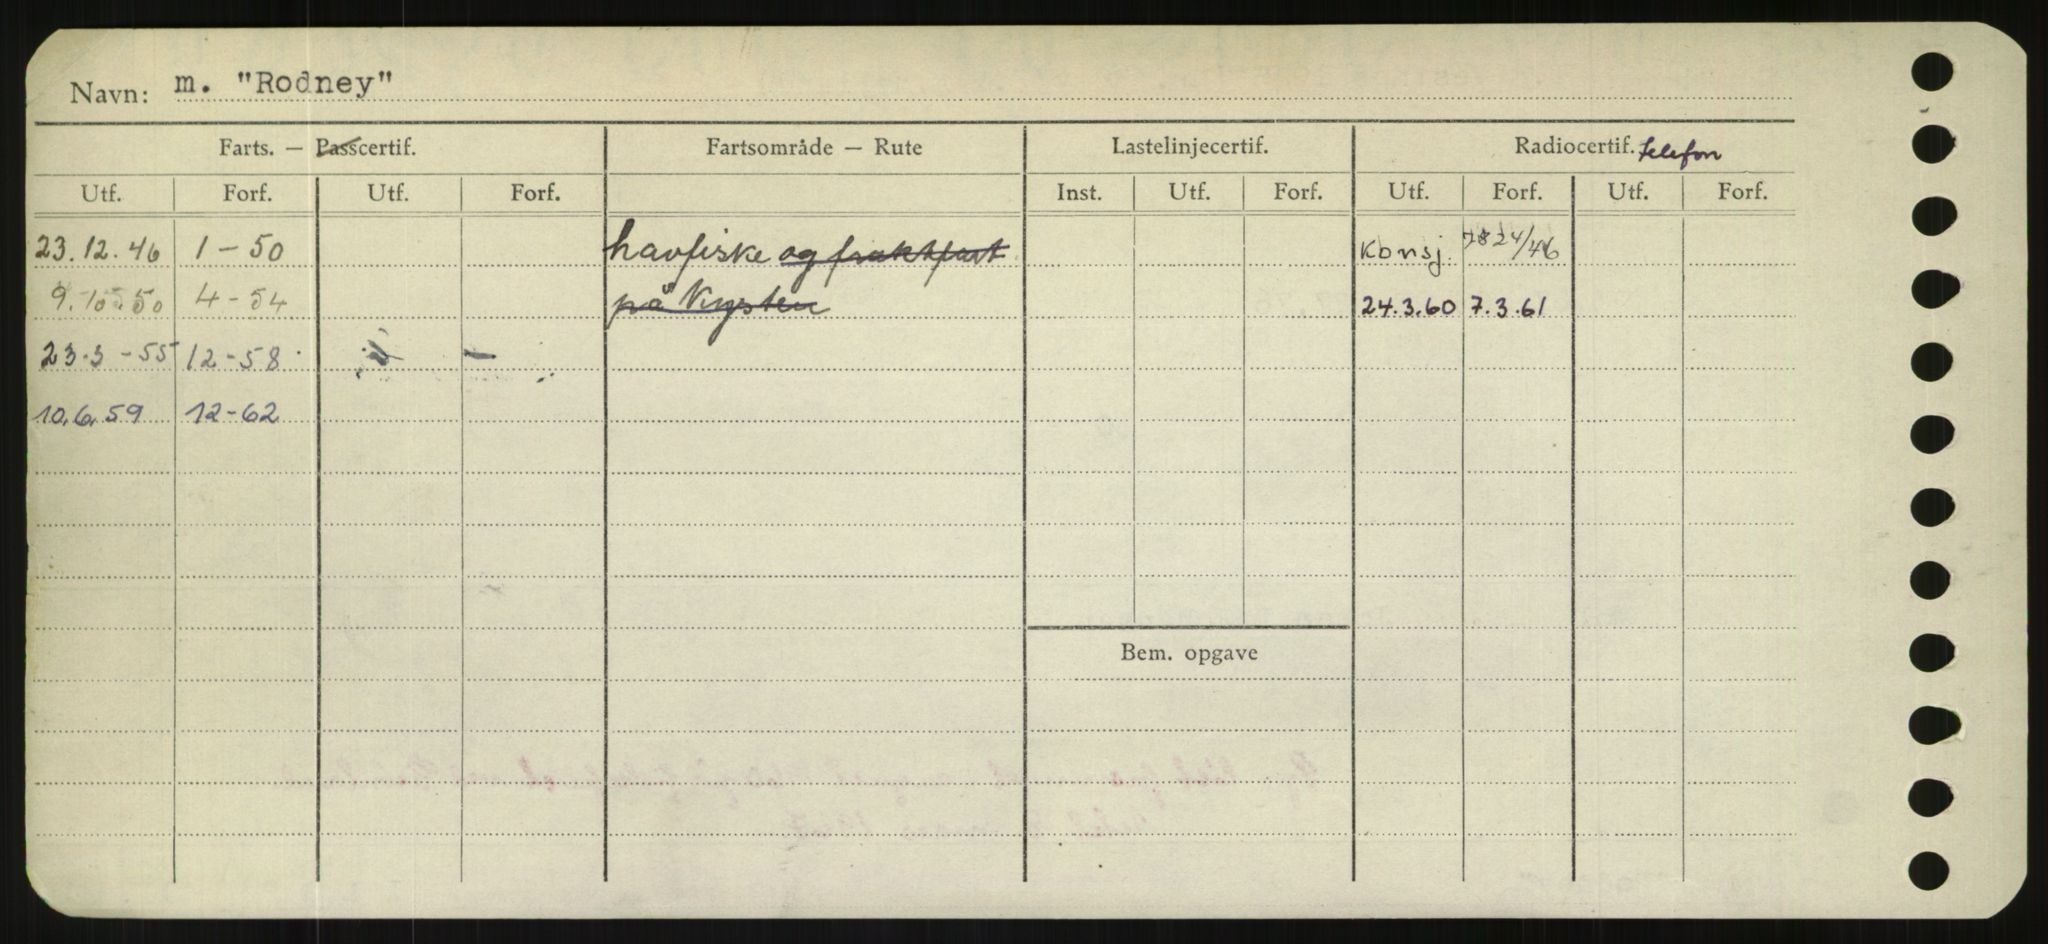 Navn: m. "Rodney"
Farts. — Passcertif. Fartsområde — Rute Lastelinjecertif. Radiocertif. telefon
Utf. Forf. Utf. Forf. Inst. Utf. Forf. Utf. Forf. Utf. Forf.
23.12.46 1-50 havfiske og fraktfart Konsj. 24/46
9.10.50 4-54 på kysten 24.3.60 7.3.61
23.3-55 12-58
10.6.59 12-62
Bem. opgave